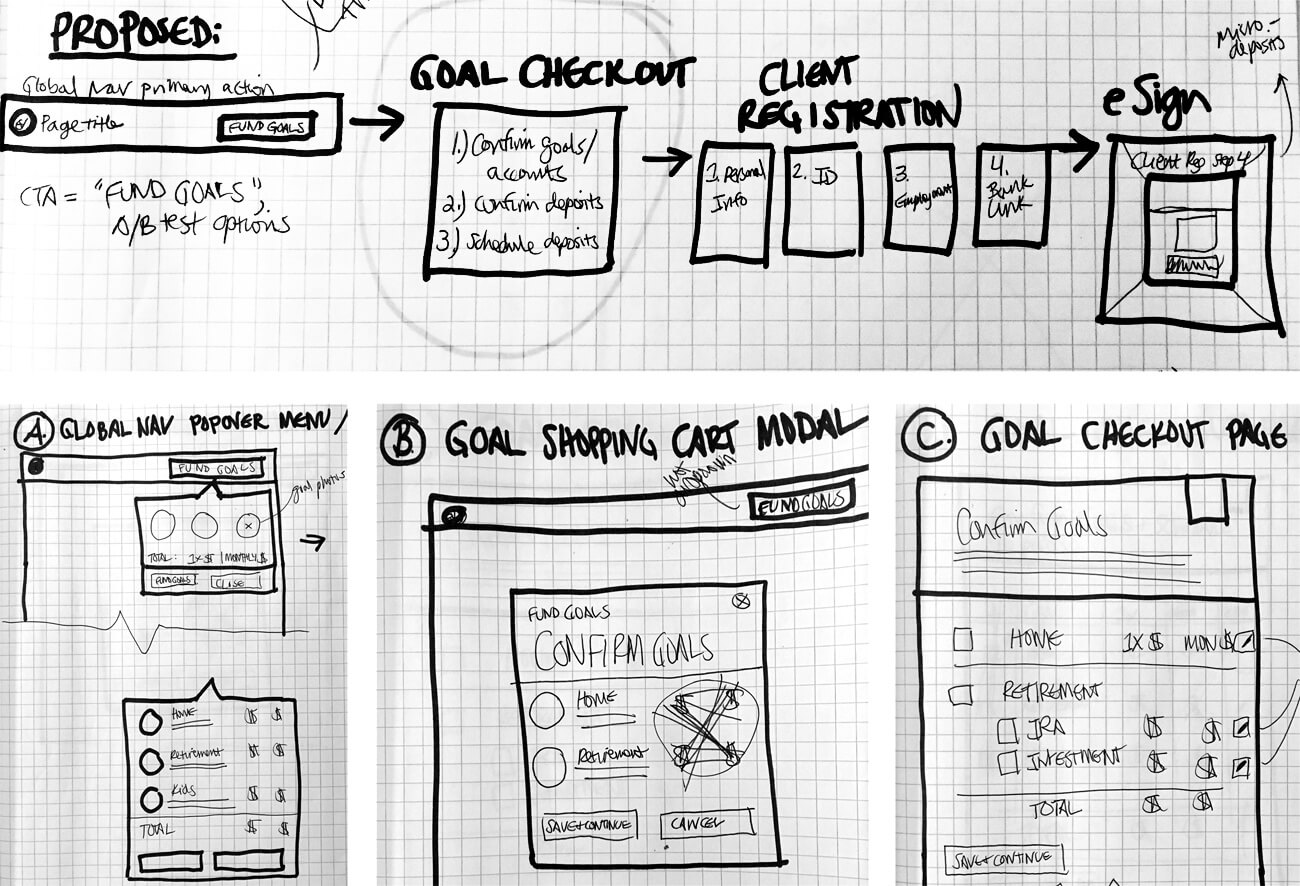 PROPOSED:
Global Nav primary action
Page title
FUND GOALS
CTA = "FUND GOALS",
A/B test options
GOAL CHECKOUT
1.) Confirm goals/
accounts
2.) Confirm deposits
3.) Schedule deposits
CLIENT
REGISTRATION
1. Personal
Info
2. ID
3.
Employment
4.
Bank
Link
eSign
Client Reg Step 4
micro-
deposits
A. GLOBAL NAV POPOVER MENU/
FUND GOALS
goal photos
TOTAL: 1X $ | MONTHLY $
FUND GOALS
CLOSE
Home $ $
Retirement $ $
Kids $ $
TOTAL $ $
B. GOAL SHOPPING CART MODAL
not
FUND GOALS
FUND GOALS
CONFIRM GOALS
HOME $ $
Retirement $ $
SAVE+CONTINUE
CANCEL
C. GOAL CHECKOUT PAGE
Confirm Goals
HOME 1X $ MON $
RETIREMENT
IRA $ $
INVESTMENT $ $
TOTAL $ $
SAVE+CONTINUE